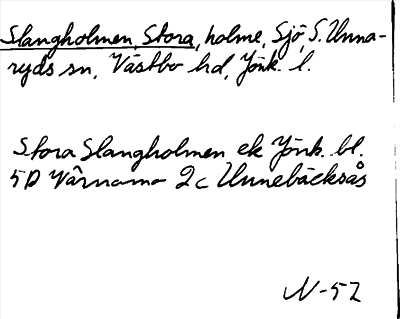 Slangholmen, Stora, holme, Sjö, S. Unna-
ryds sn, Västbo hd, Jönk. l.
Stora Slangholmen ek Jönk. bl.
5D Värnamo 2c Unnebäcksås
N-52